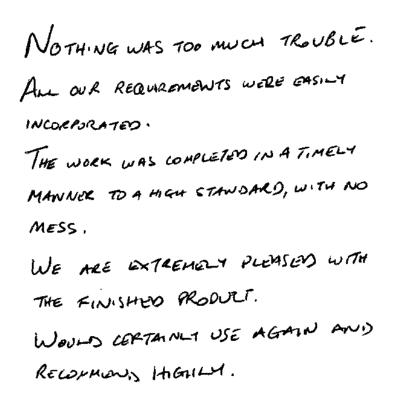 NOTHING WAS TOO MUCH TROUBLE.
ALL OUR REQUIREMENTS WERE EASILY
INCORPORATED.
THE WORK WAS COMPLETED IN A TIMELY
MANNER TO A HIGH STANDARD, WITH NO
MESS.
WE ARE EXTREMELY PLEASED WITH
THE FINISHED PRODUCT.
WOULD CERTAINLY USE AGAIN AND
RECOMMEND HIGHLY.